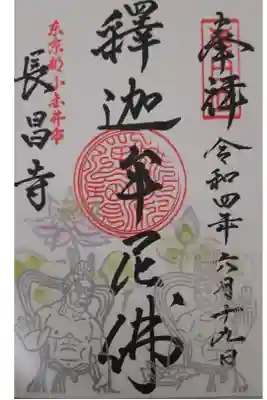 奉拝
令和四年六月十九日
釋迦牟尼佛
東京都小金井市
長昌寺